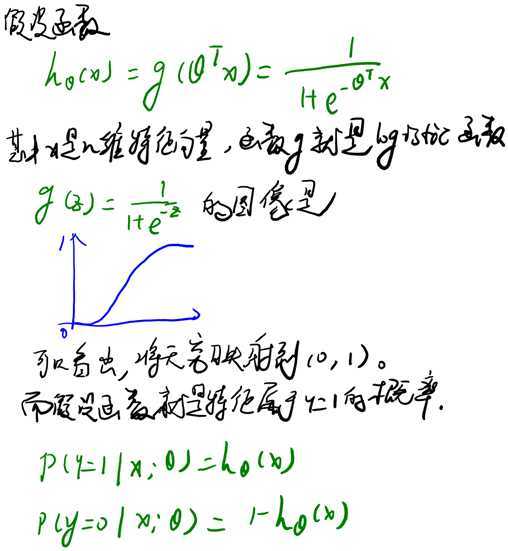 假设函数
hθ(x) = g(θᵀx) = 1/(1+e^(-θᵀx))
其中x是n维特征向量，函数g就是logistic函数
g(z) = 1/(1+e^(-z)) 的图像是
1
0
可以看出，将无穷映射到(0,1)。
而假设函数就是特征属于y=1的概率.
P(y=1|x;θ) = hθ(x)
P(y=0|x;θ) = 1-hθ(x)